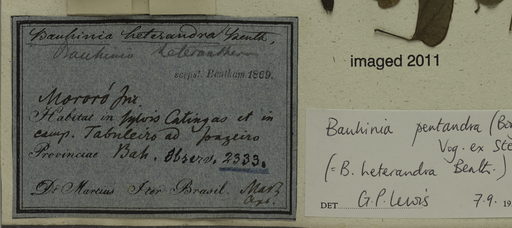 Bauhinia heterandra Benth.
Bauhinia heteranthera
scrips. Bentham 1869.
Mororó
Habitat in sylvis Catingas et in
camp. Tabuleiro ad Joazeiro
Provinciae Bah. Observ. 2333.
Dr Martius Iter Brasil.
imaged 2011
Bauhinia pentandra (Bo
Vog. ex Ste
(= B. heterandra Benth.)
DET G.P. Lewis 7.9.19